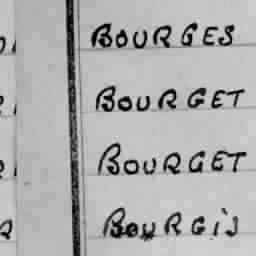 BOURGES
BOURGET
BOURGET
BOURGiS